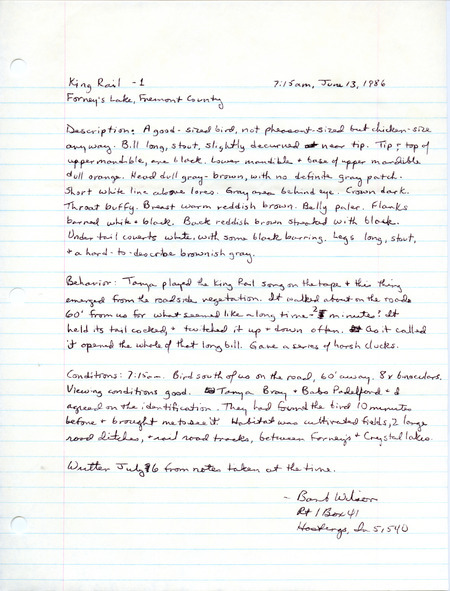 King Rail -1 7:15am, June 13, 1986
Forney's Lake, Fremont County
Description: A good-sized bird, not pheasant-sized but chicken-size
anyway. Bill long, stout, slightly decurved near tip. Tip + top of
upper mandible are black. Lower mandible + base of upper mandible
dull orange. Head dull gray-brown, with no definite gray patch.
Short white line above lores. Gray area behind eye. Crown dark.
Throat buffy. Breast warm reddish brown. Belly paler. Flanks
barred white + black. Back reddish brown streaked with black.
Under tail coverts white, with some black barring. Legs long, stout,
+ a hard-to-describe brownish gray.
Behavior: Tanya played the King Rail song on the tape + this thing
emerged from the roadside vegetation. It walked about on the road
60' from us for what seemed like a long time - 2 minutes? It
held its tail cocked, + twitched it up + down often. As it called
it opened the whole of that long bill. Gave a series of harsh clucks.
Conditions: 7:15am. Bird south of us on the road, 60' away. 8x binoculars.
Viewing conditions good. Tanya Bray + Babs Padelford + I
agreed on the identification. They had found the bird 10 minutes
before + brought me to see it. Habitat was cultivated fields, 2 large
road ditches, + rail road tracks, between Forneys + Crystal lakes.
Written July 86 from notes taken at the time.
- Barb Wilson
Rt 1 Box 41
Hastings, Ia 51540